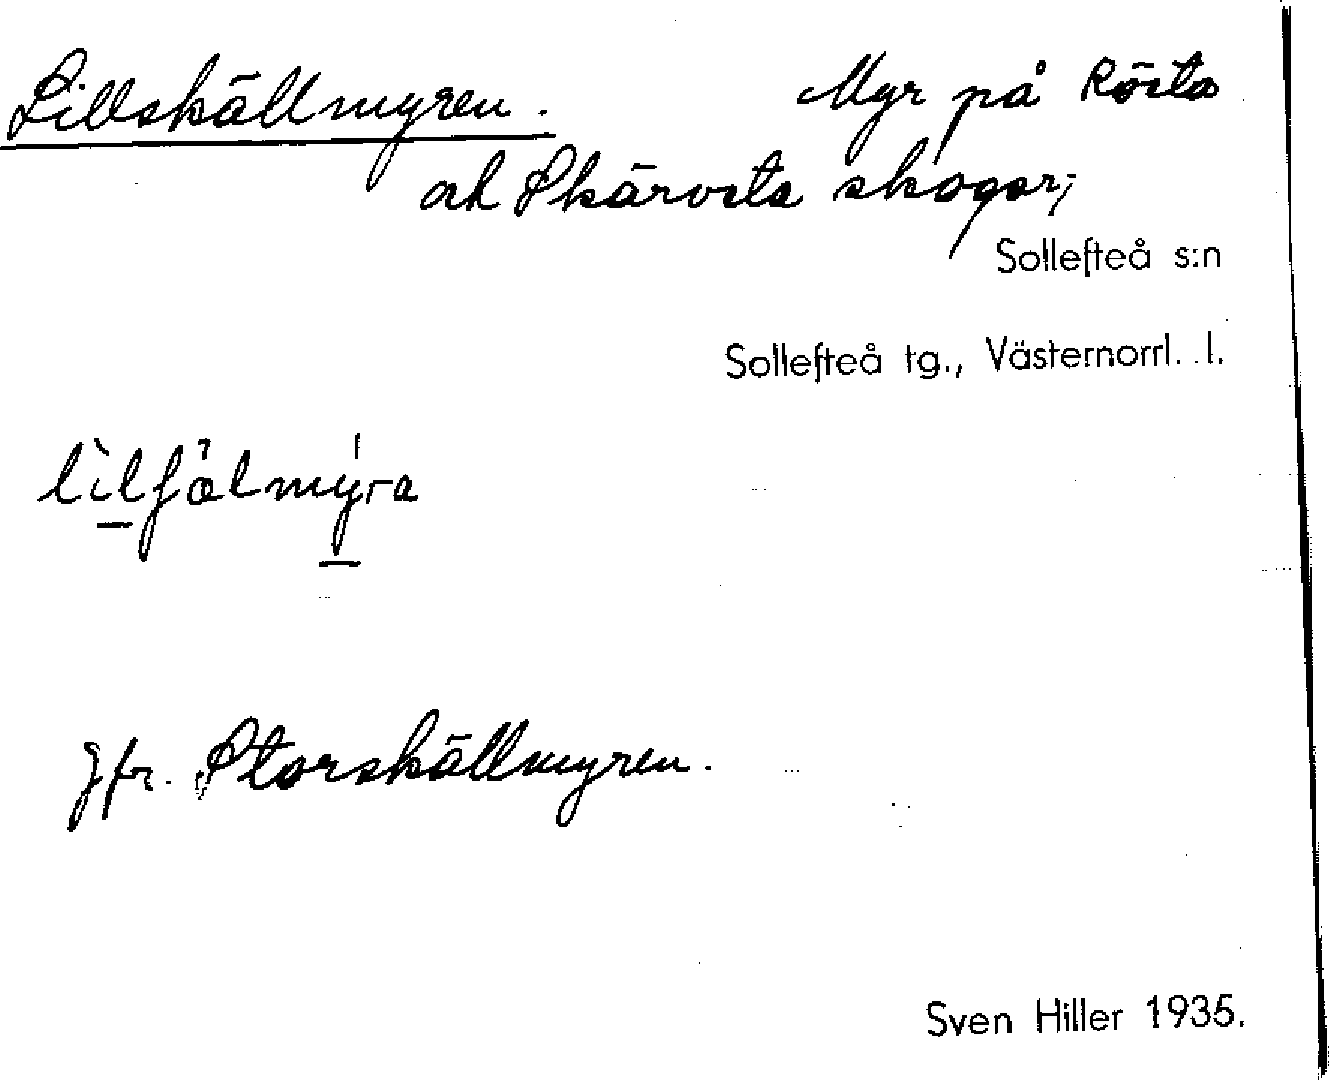 Lillskällmyren. Myr på Rösta
och Skärvsta skogar;
Sollefteå s:n
Sollefteå tg., Västernorrl. l.
jfr. Storskällmyren.
Sven Hiller 1935.